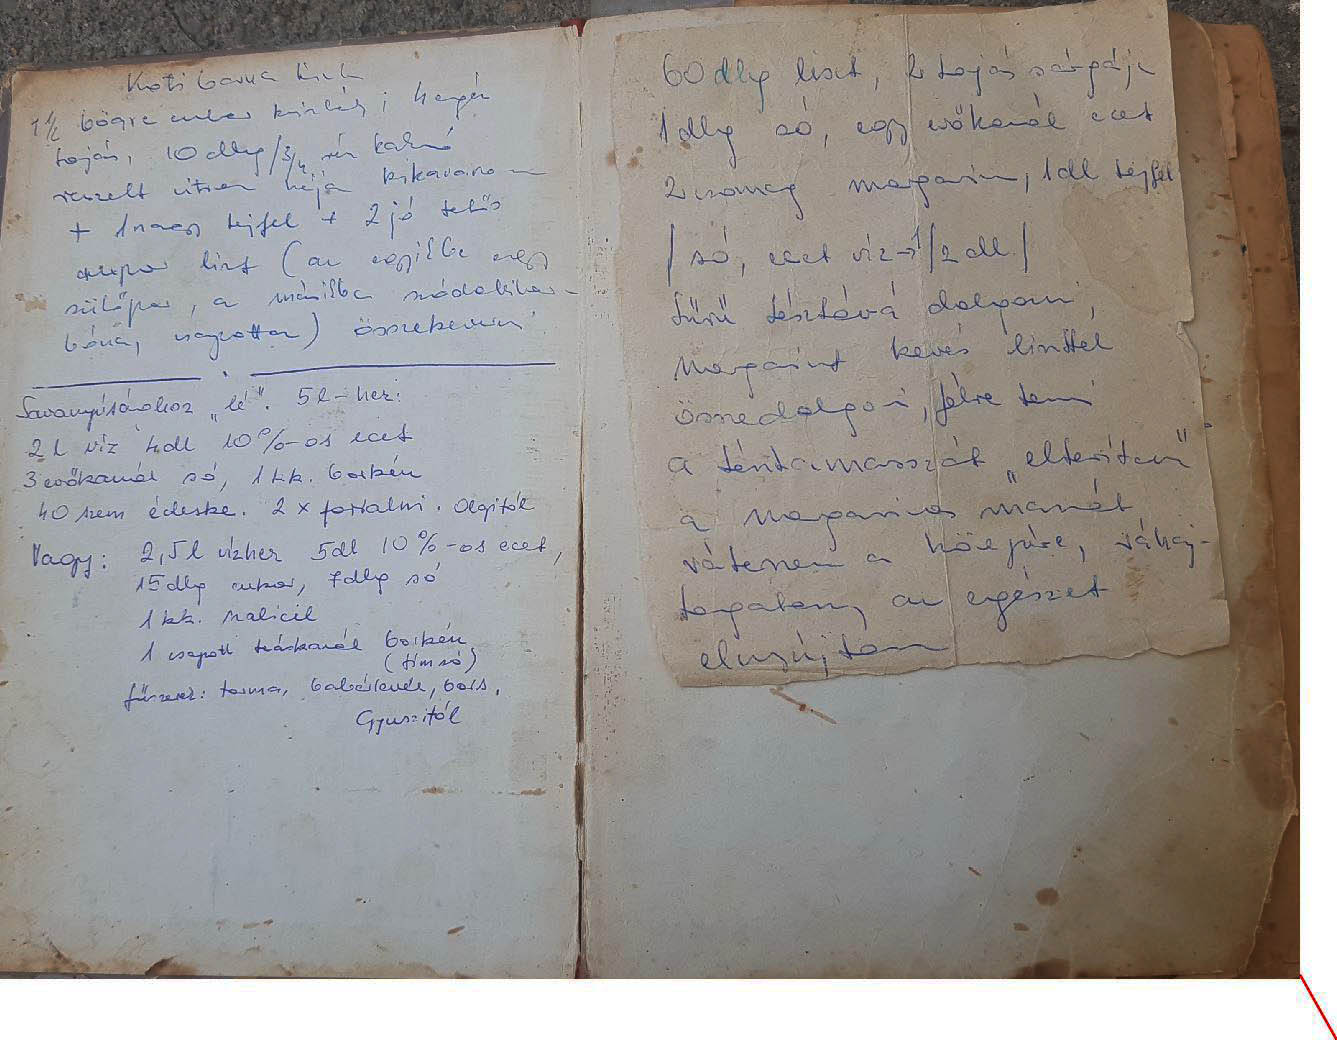 Kati barna
1 1/2 bögre cukor
tojás, 10 dkg / 3/4 rész kakaó
reszelt citrom héja kikavarom
+ 1 nagy tejfel + 2 jó tetős
liszt (az egyikbe egy
sütőpor, a másikba szódabikar-
bóna, ) összekeverni
Savanyúsághoz „lé". 5 l-hez:
2 l víz 4 dl 10%-os ecet
3 evőkanál só, 1 kk. borkén
40 szem édeske. 2 x forralni.
Vagy: 2,5 l vízhez 5dl 10%-os ecet,
15 dkg cukor, 7 dkg só
1 kk. szalicil
1 csapott teáskanál borkén
(timsó)
fűszerek: torma, babérlevél, bors.
Gyuszitól
60 dkg liszt, 2 tojás sárgája
1 dkg só, egy evőkanál ecet
2 csomag margarin, 1 dl tejfel
/ só, ecet víz → 1/2 dl /
tésztává dolgozni,
margarint kevés liszttel
összedolgozni, félre tenni
a tésztamasszát „elterítem"
a margarinos masszát
ráteszem a közepére, ráhaj-
togatom, az egészet
elnyújtom